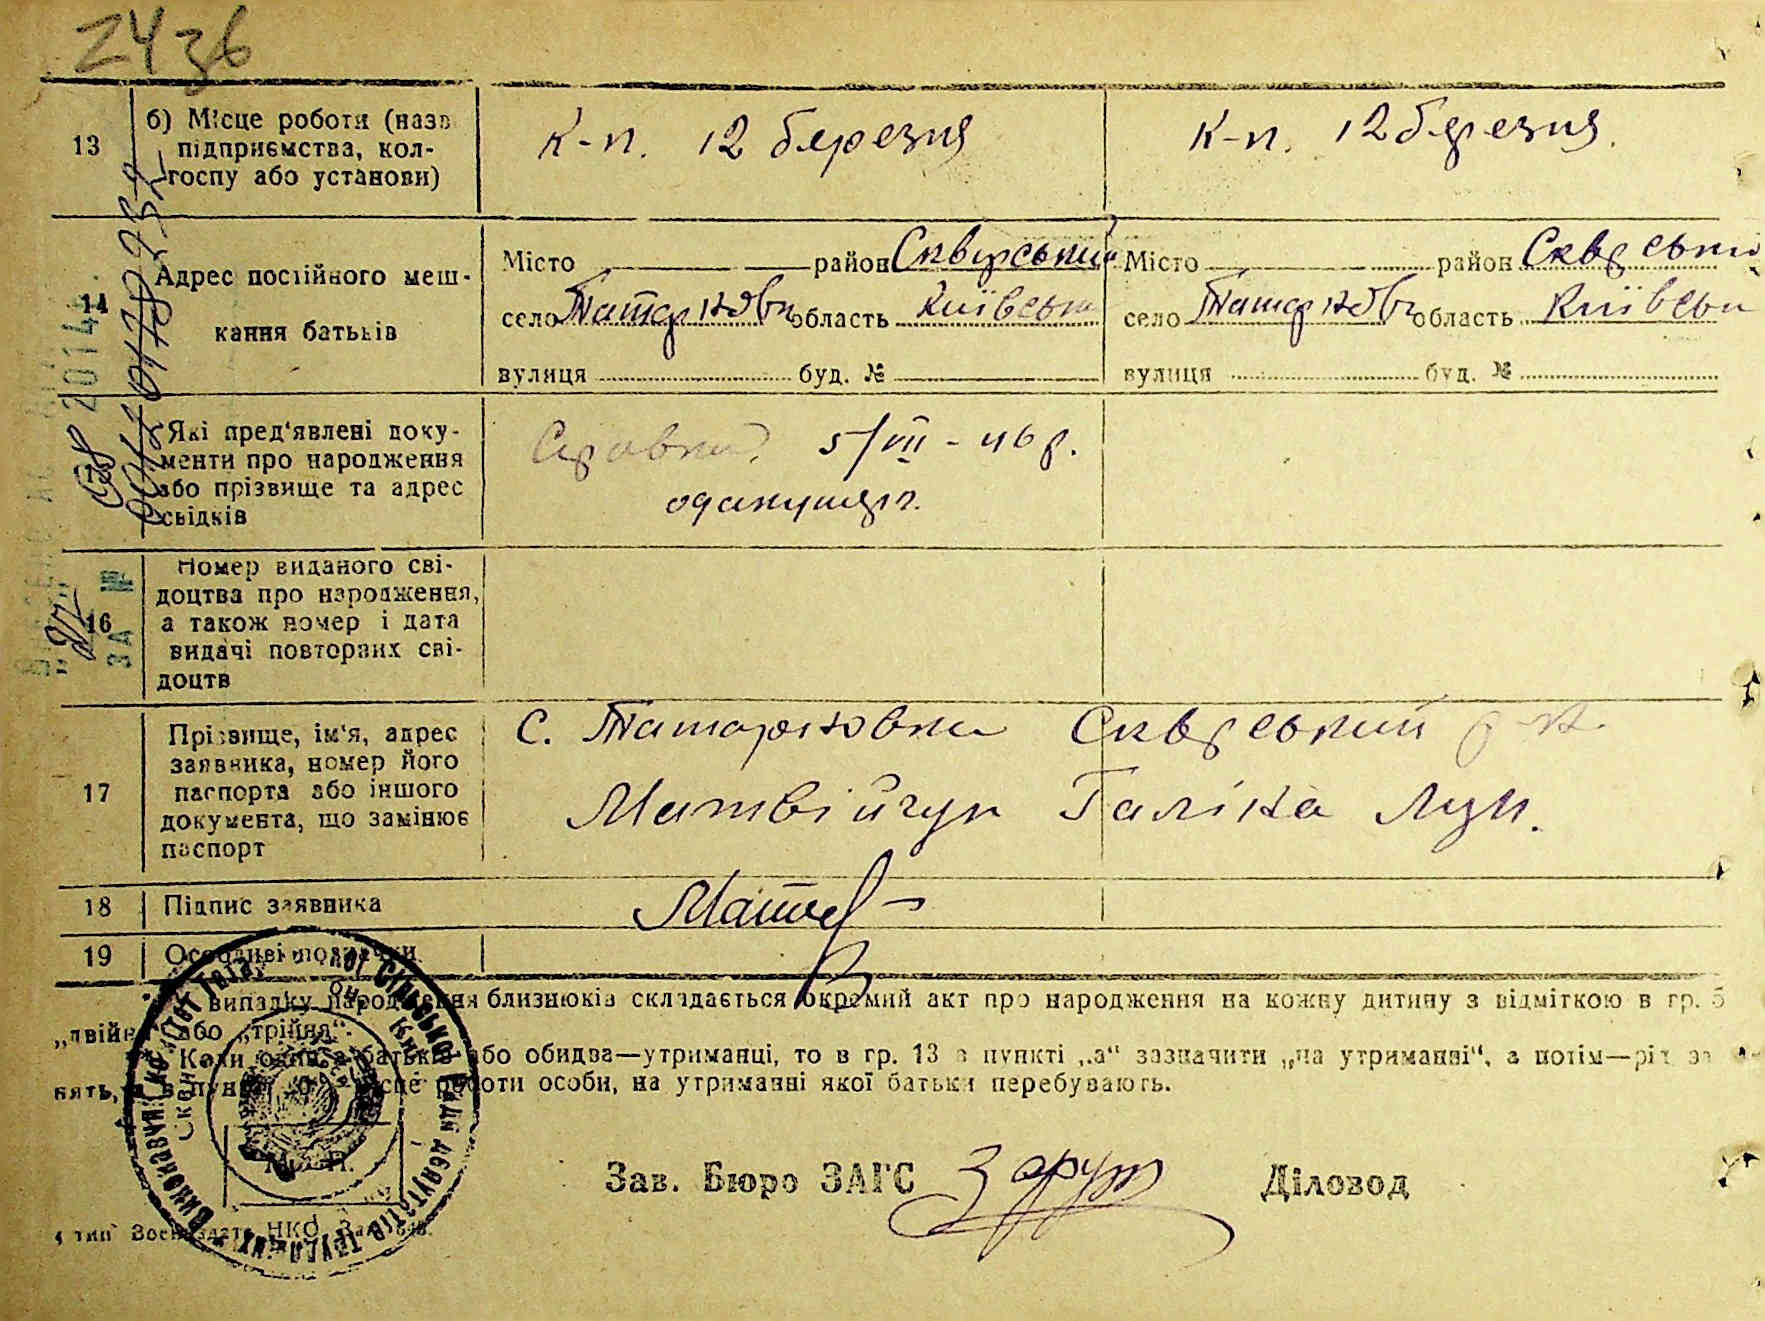 2436
13
б) Місце роботи (назв
підприємства, кол-
госпу або установи)
к-п. 12 березня
к-п. 12 березня.
14
Адрес постійного меш-
кання батьків
Місто район Сквирський
село Татарновка область Київськ
вулиця буд. №
Місто район Сквирськи
село Татарновка область Київськ
вулиця буд. №
Які пред'явлені доку-
менти про народження
або прізвище та адрес
свідків
Справка 5/VII-46 р.
16
Номер виданого сві-
доцтва про народження,
а також номер і дата
видачі повторних сві-
доцтв
17
Прізвище, ім'я, адрес
заявника, номер його
паспорта або іншого
документа, що замінює
паспорт
с. Татарновка Сквирський р-н
Матвійчук Галіна
18
Підпис заявника
19
Особливі позначки
випадку народження близнюків складається окремий акт про народження на кожну дитину з відміткою в гр. 5
„двійня" або „трійня".
Коли один з батьків або обидва—утриманці, то в гр. 13 в пункті „а" зазначити „на утриманні", а потім—рід за
нять, місце роботи особи, на утриманні якої батьки перебувають.
М. П.
Зав. Бюро ЗАГС
Діловод